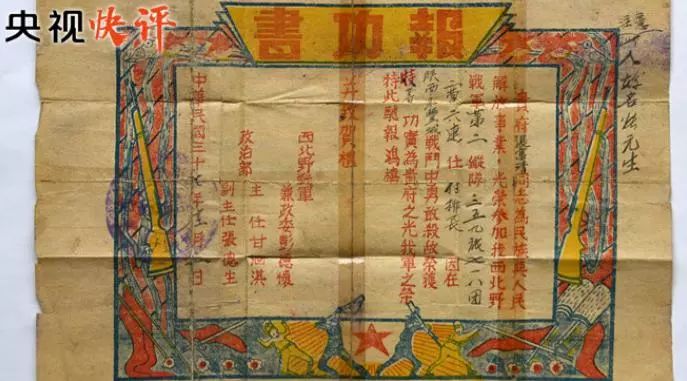 央视快评
報功書
貴府張富清同志為民族與人民
解放事業,光榮參加我西北野
戰軍第二縱隊三五九旅七一八团
二营六連 任 排長 因在
陝西永豐城戰鬥中勇敢殺敵榮獲
特等功實為貴府之光我軍之榮
特此馳報鴻禧
并致賀禮
西北野戰軍
兼政委彭德懷
政治部
主任甘泗淇
副主任張德生
中華民國三十七年十二月 日